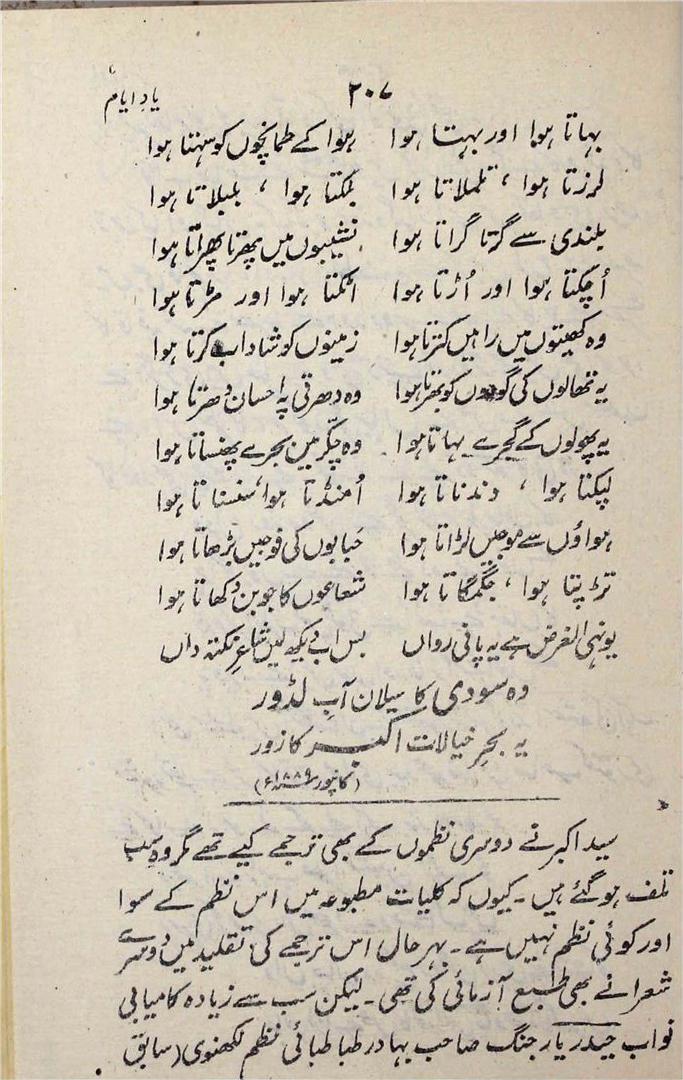 یادِ ایام
۳۰۷
بہاتا ہوا اور بہتا ہوا ہوا کے طمانچوں کو سہتا ہوا
لرزتا ہوا ، تلملاتا ہوا بلکتا ہوا ، بلبلاتا ہوا
بلندی سے گرتا گراتا ہوا نشیبوں میں پھرتا پھراتا ہوا
اُچکتا ہوا اور اُڑتا ہوا اٹکتا ہوا اور مڑتا ہوا
وہ کھیتوں میں راہیں کترتا ہوا زمینوں کو شاداب کرتا ہوا
یہ تھالوں کی گودوں کو بھرتا ہوا وہ دھرتی پہ احسان دھرتا ہوا
یہ پھولوں کے گجرے بہاتا ہوا وہ چکّر میں بجرے پھنساتا ہوا
لپکتا ہوا ، دندناتا ہوا اُمنڈتا ہوا ، سنسناتا ہوا
ہواؤں سے موجیں لڑاتا ہوا حُبابوں کی فوجیں بڑھاتا ہوا
تڑپتا ہوا ، جگمگاتا ہوا شعاعوں کا جوبن دکھاتا ہوا
یونہی الغرض ہے یہ پانی رواں بس اب دیکھ لیں شاعرِ نکتہ داں
وہ سودی کا سیلان آبِ لڈور
یہ بحرِ خیالات اکبر کا زور
(کانپور ۱۸۸۹ء)
سید اکبر نے دوسری نظموں کے بھی ترجمے کیے تھے مگر وہ سب
تلف ہو گئے ہیں ۔ کیوں کہ کلیات مطبوعہ میں اس نظم کے سوا
اور کوئی نظم نہیں ہے ۔ بہر حال اس ترجمے کی تقلید میں دوسرے
شعرا نے بھی طبع آزمائی کی تھی ۔ لیکن سب سے زیادہ کامیابی
نواب حیدر یار جنگ صاحب بہادر طباطبائی نظم لکھنوی (سابق